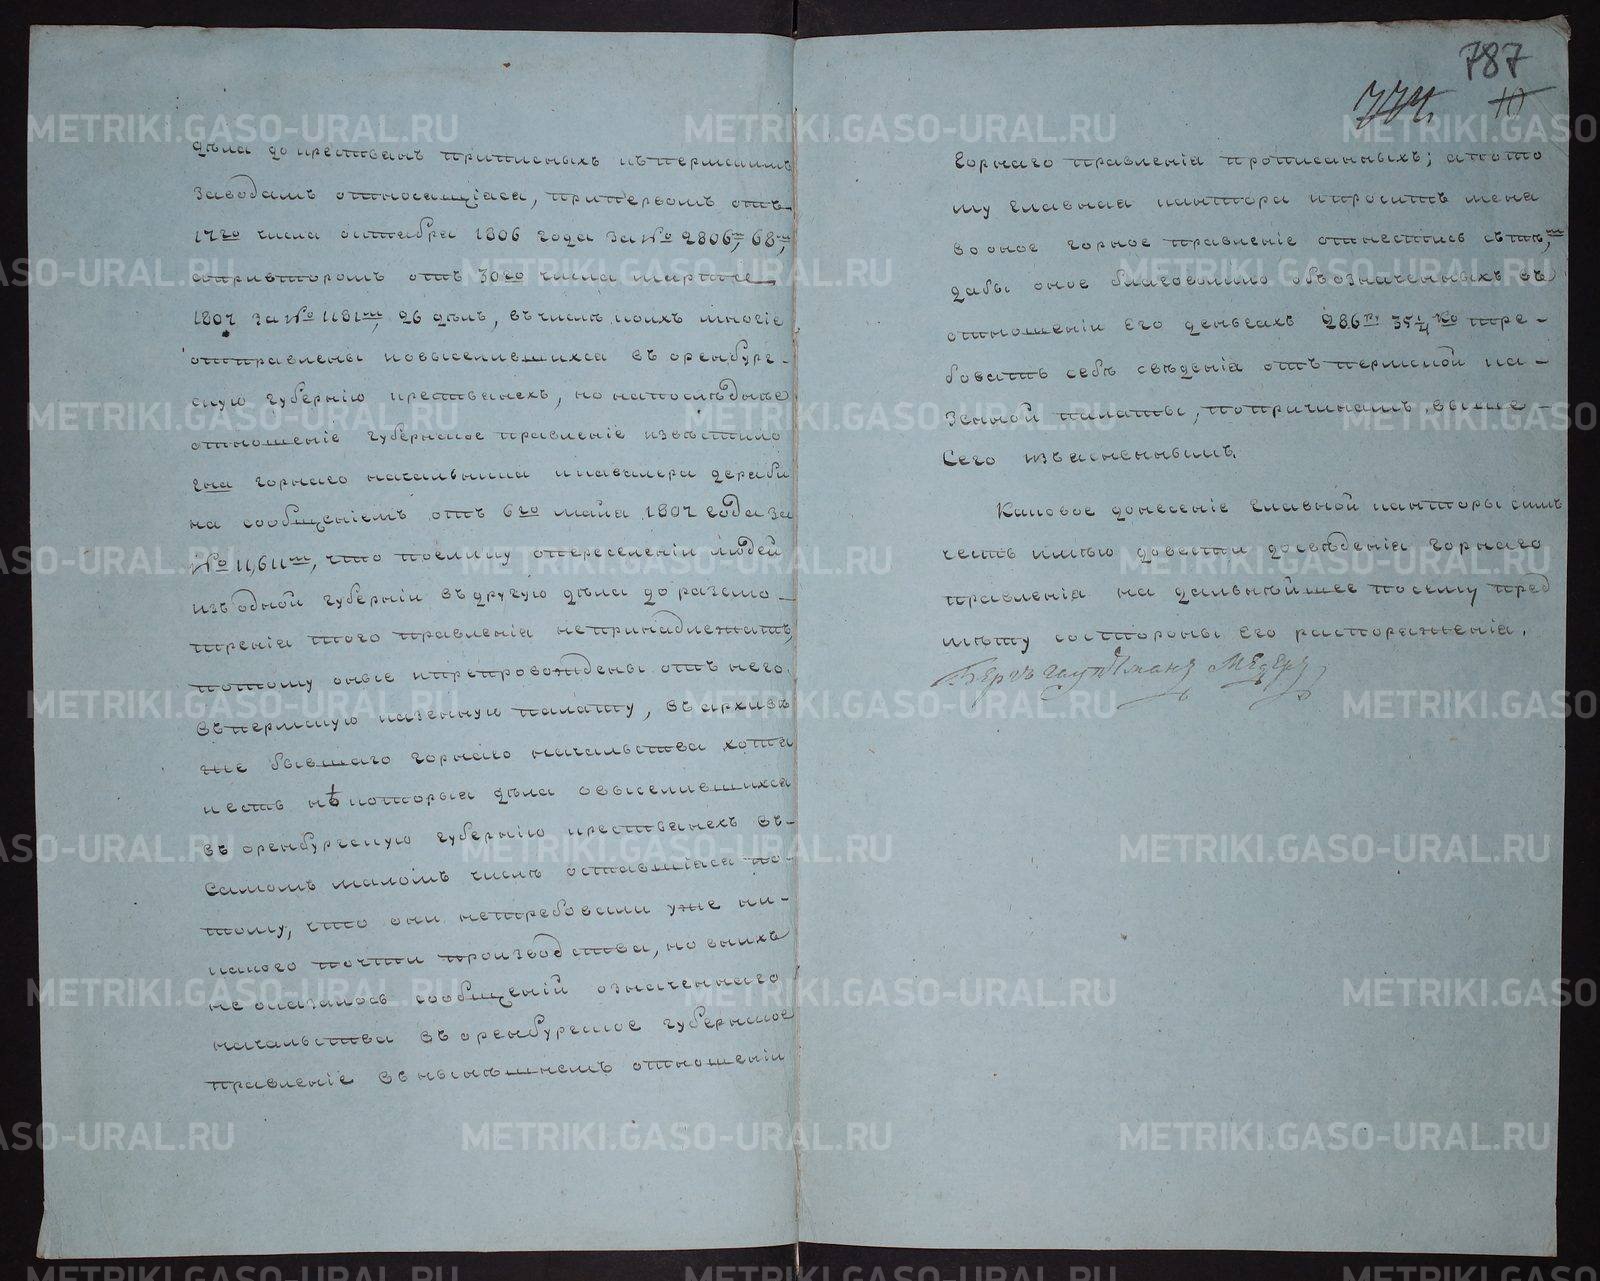 дѣла до крестьянъ приписныхъ къ пермскимъ
заводамъ относящіяся, при первомъ отъ
17го числа октября 1806 года за № 2806мъ, 68мь,
а при второмъ отъ 30го числа марта же
1807 за № 1181мъ, 26 дѣлъ, въ числѣ коихъ многіе
отправлены о выселившихся въ оренбург-
скую губернію крестьянехъ, но на послѣднѣе
отношеніе губернское правленіе извѣстило
гна горнаго начальника и кавалера дераби
на сообщеніемъ отъ 6го майя 1807 года за
№ 11,611мъ, что поелику о переселеніи людей
изъ одной губерніи въ другую дѣла до разсмо-
тренія того правленія не принадлежатъ,
потому оные и препровождены отъ него
въ пермскую казенную палату, въ архивѣ
же бывшаго горнаго начальства хотя
и есть нѣкоторыя дѣла о выселившихся
въ оренбургскую губернію крестьянехъ въ
самомъ маломъ числѣ оставшіяся по-
тому, что они не требовали уже ни-
какого почти производства, но в нихъ
не оказалось сообщеній означеннаго
начальства въ оренбургское губернское
правленіе въ нынѣшнемъ отношеніи
787
774.
10
Горнаго правленія прописанныхъ; а пото
му главная кантора и проситъ меня
во оное горное правленіе отнестись съ тѣмъ,
дабы оное благоволило объ означенныхъ въ
отношеніи его деньгахъ 286ру 35¼ ко тре-
бовать себѣ свѣденія отъ пермской ка-
зенной палаты, по причинамъ выше-
сего изъясненнымъ.
Каковое донесеніе главной канторы симъ
честь имѣю довести до свѣденія горнаго
правленія на дальнѣйшее посему пред
мѣту со стороны его распоряженія.
Бергъ гауптманъ Медеръ